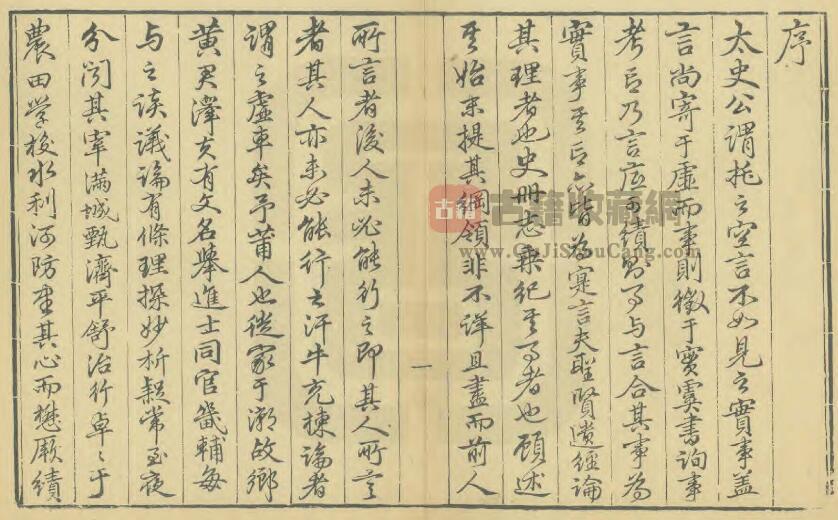 序
太史公謂托之空言不如見之實事蓋
言尚寄于虛而事則徵于實虞書詢事
考言乃言厎可績則事与言合其事為
實事其言亦皆為寔言夫聖賢遺經論
其理者也史冊志乘紀其事者也顧述
其始末提其綱領非不詳且盡而前人
一
所言者後人未必能行之即其人所言
者其人亦未必能行之汗牛充棟論者
謂之虛車矣予莆人也徙家于潮故鄉
黃君澤夫有文名舉進士同官畿輔每
与之談議論有條理探妙析疑常至夜
分聞其宰滿城甄濟平舒治行卓〻于
農田学校水利河防盡其心而懋厥績
古籍
古籍收藏網
www.GuJiShouCang.com